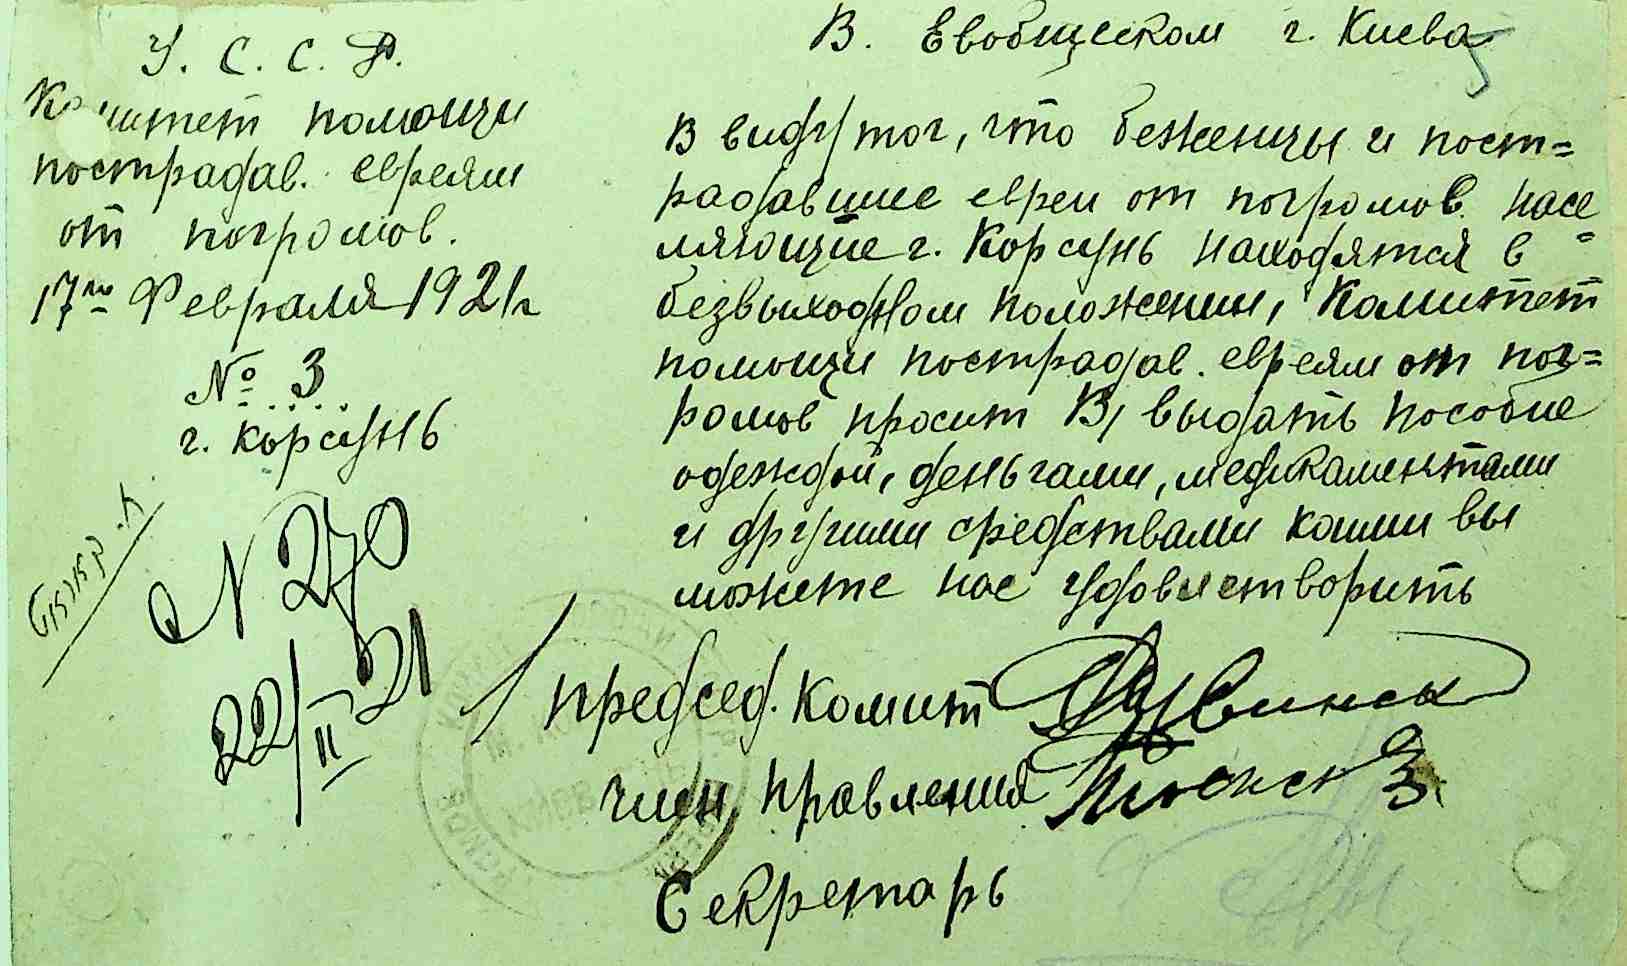 У. С. С. Р.
Комитет помощи
пострадав. евреям
от погромов.
17го Февраля 1921 г
№ 3
г. Корсунь
N 270
22/II 21
В. Евобщеском г. Киева
В виду тог, что беженцы и пост=
радавшие евреи от погромов. насе=
ляющие г. Корсунь находятся в
безвыходном положении, Комитет
помощи пострадав. евреям от пог=
ромов просит В, выдать пособие
одеждой, деньгами, медикаментами
и другими средствами коими вы
можете нас удовлетворить
Председ. Комит
член, Правления
Секретарь